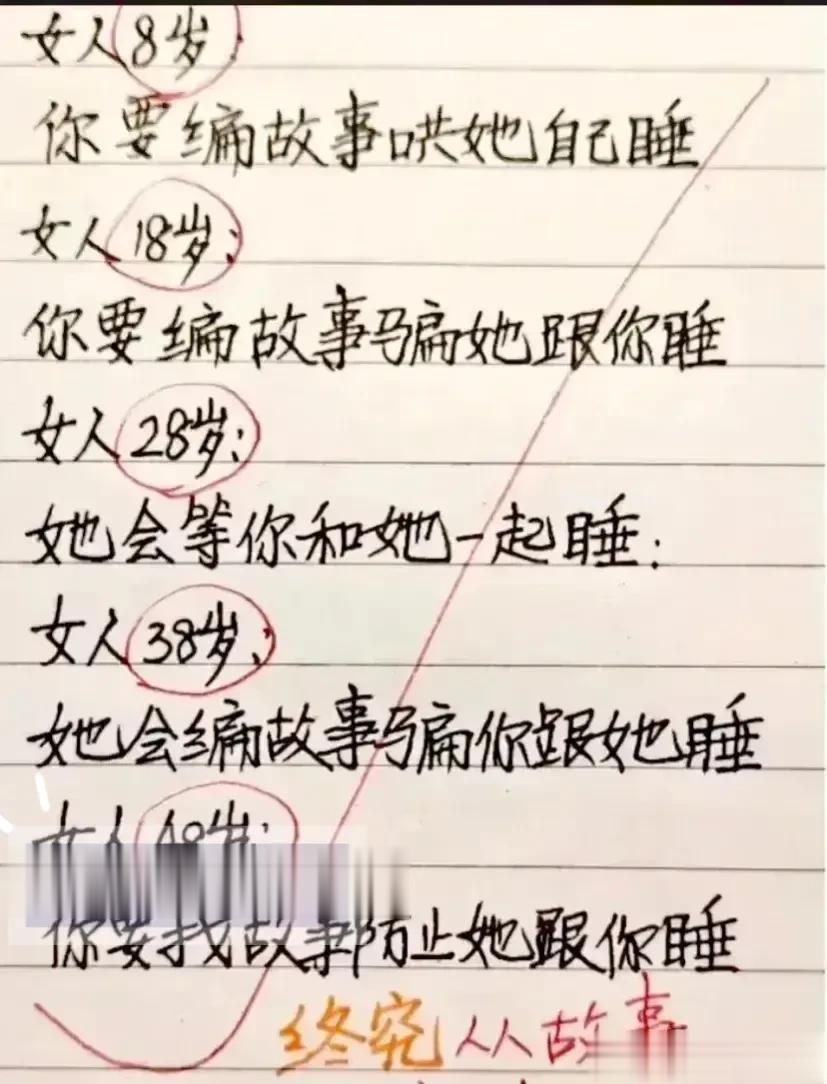 女人8岁:
你要编故事哄她自己睡
女人18岁:
你要编故事骗她跟你睡
女人28岁:
她会等你和她一起睡:
女人38岁:
她会编故事骗你跟她睡
女人48岁:
你要找故事防止她跟你睡
终究 人人 故事